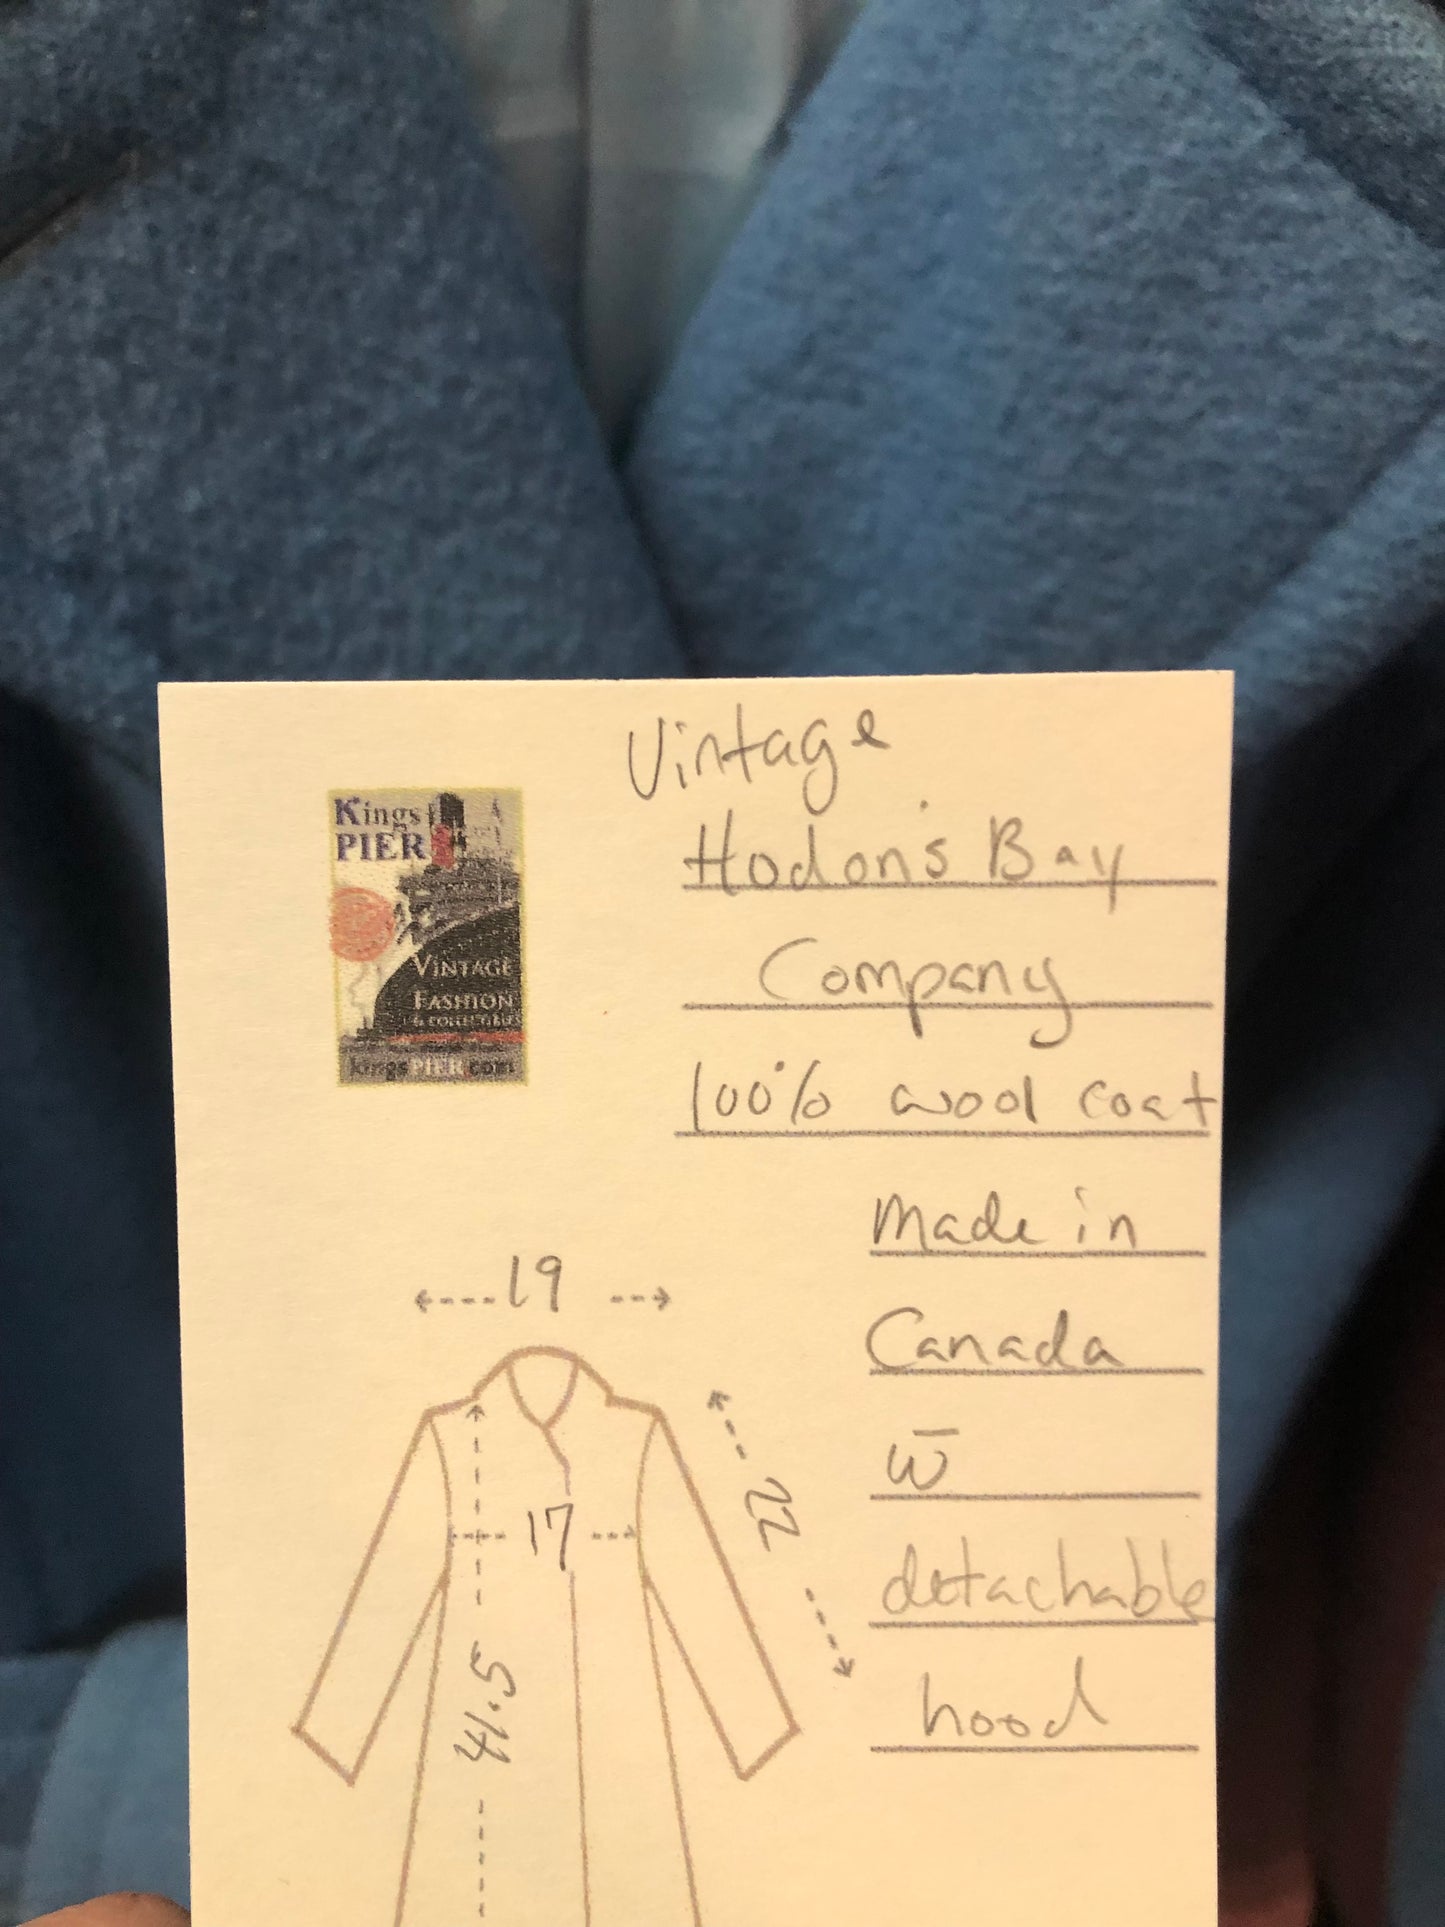 Vintage
Hodon's Bay
Company
100% wool coat
made in
Canada
w̄
detachable
hood
Kings
PIER
VINTAGE
FASHION
& COLLECTIBLES
kingsPIER.com
19
17
22
41.5